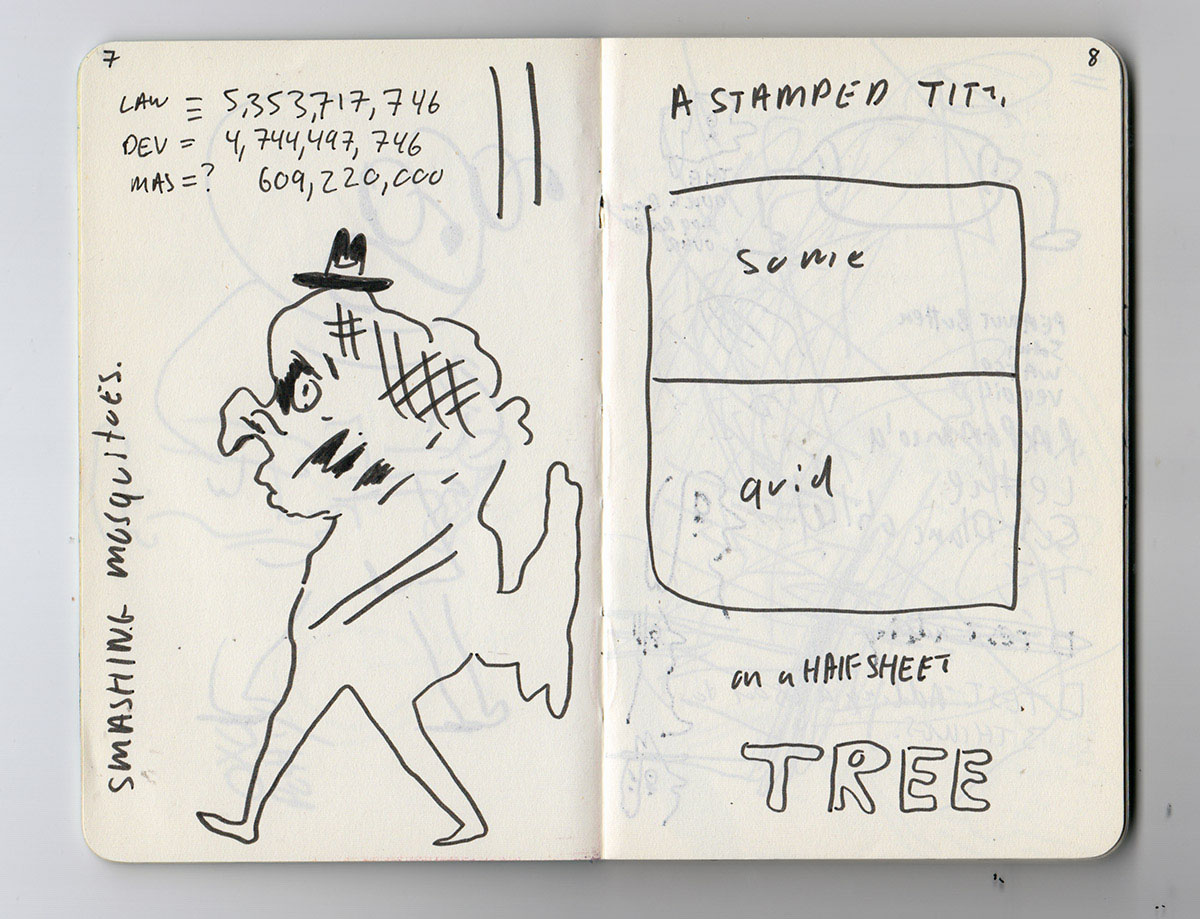 7
LAW = 5,353,717,746
DEV = 4,744,497,746
MAS = ? 609,220,000
SMASHING MOSQUITOES.
8
A STAMPED
some
on a HALF SHEET
TREE